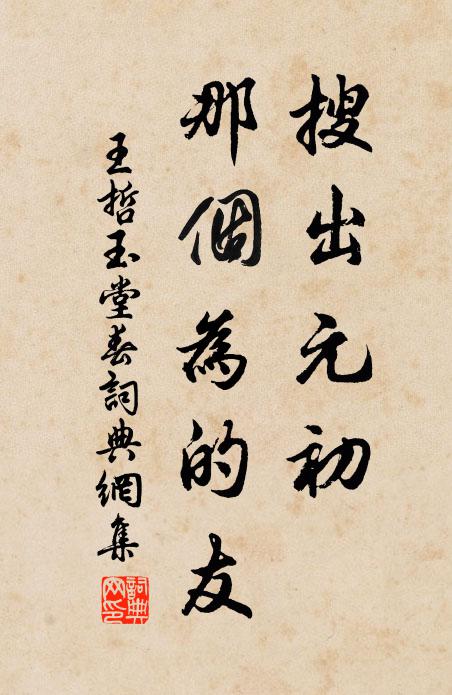 搜出元初
那個為的友
王哲玉堂春詞典網集
詞典网印